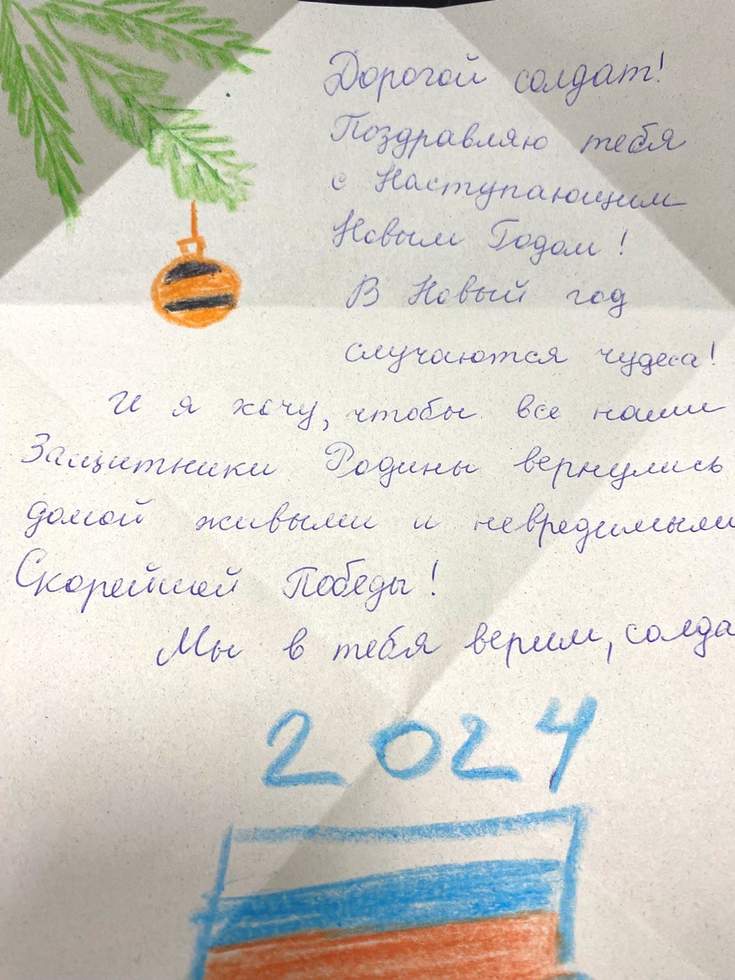 Дорогой солдат!
Поздравляю тебя
с Наступающим
Новым Годом!
В Новый год
случаются чудеса!
И я хочу, чтобы все наши
Защитники Родины вернулись
домой живыми и невредимыми
Скорейшей Победы!
Мы в тебя верим, солда
2024